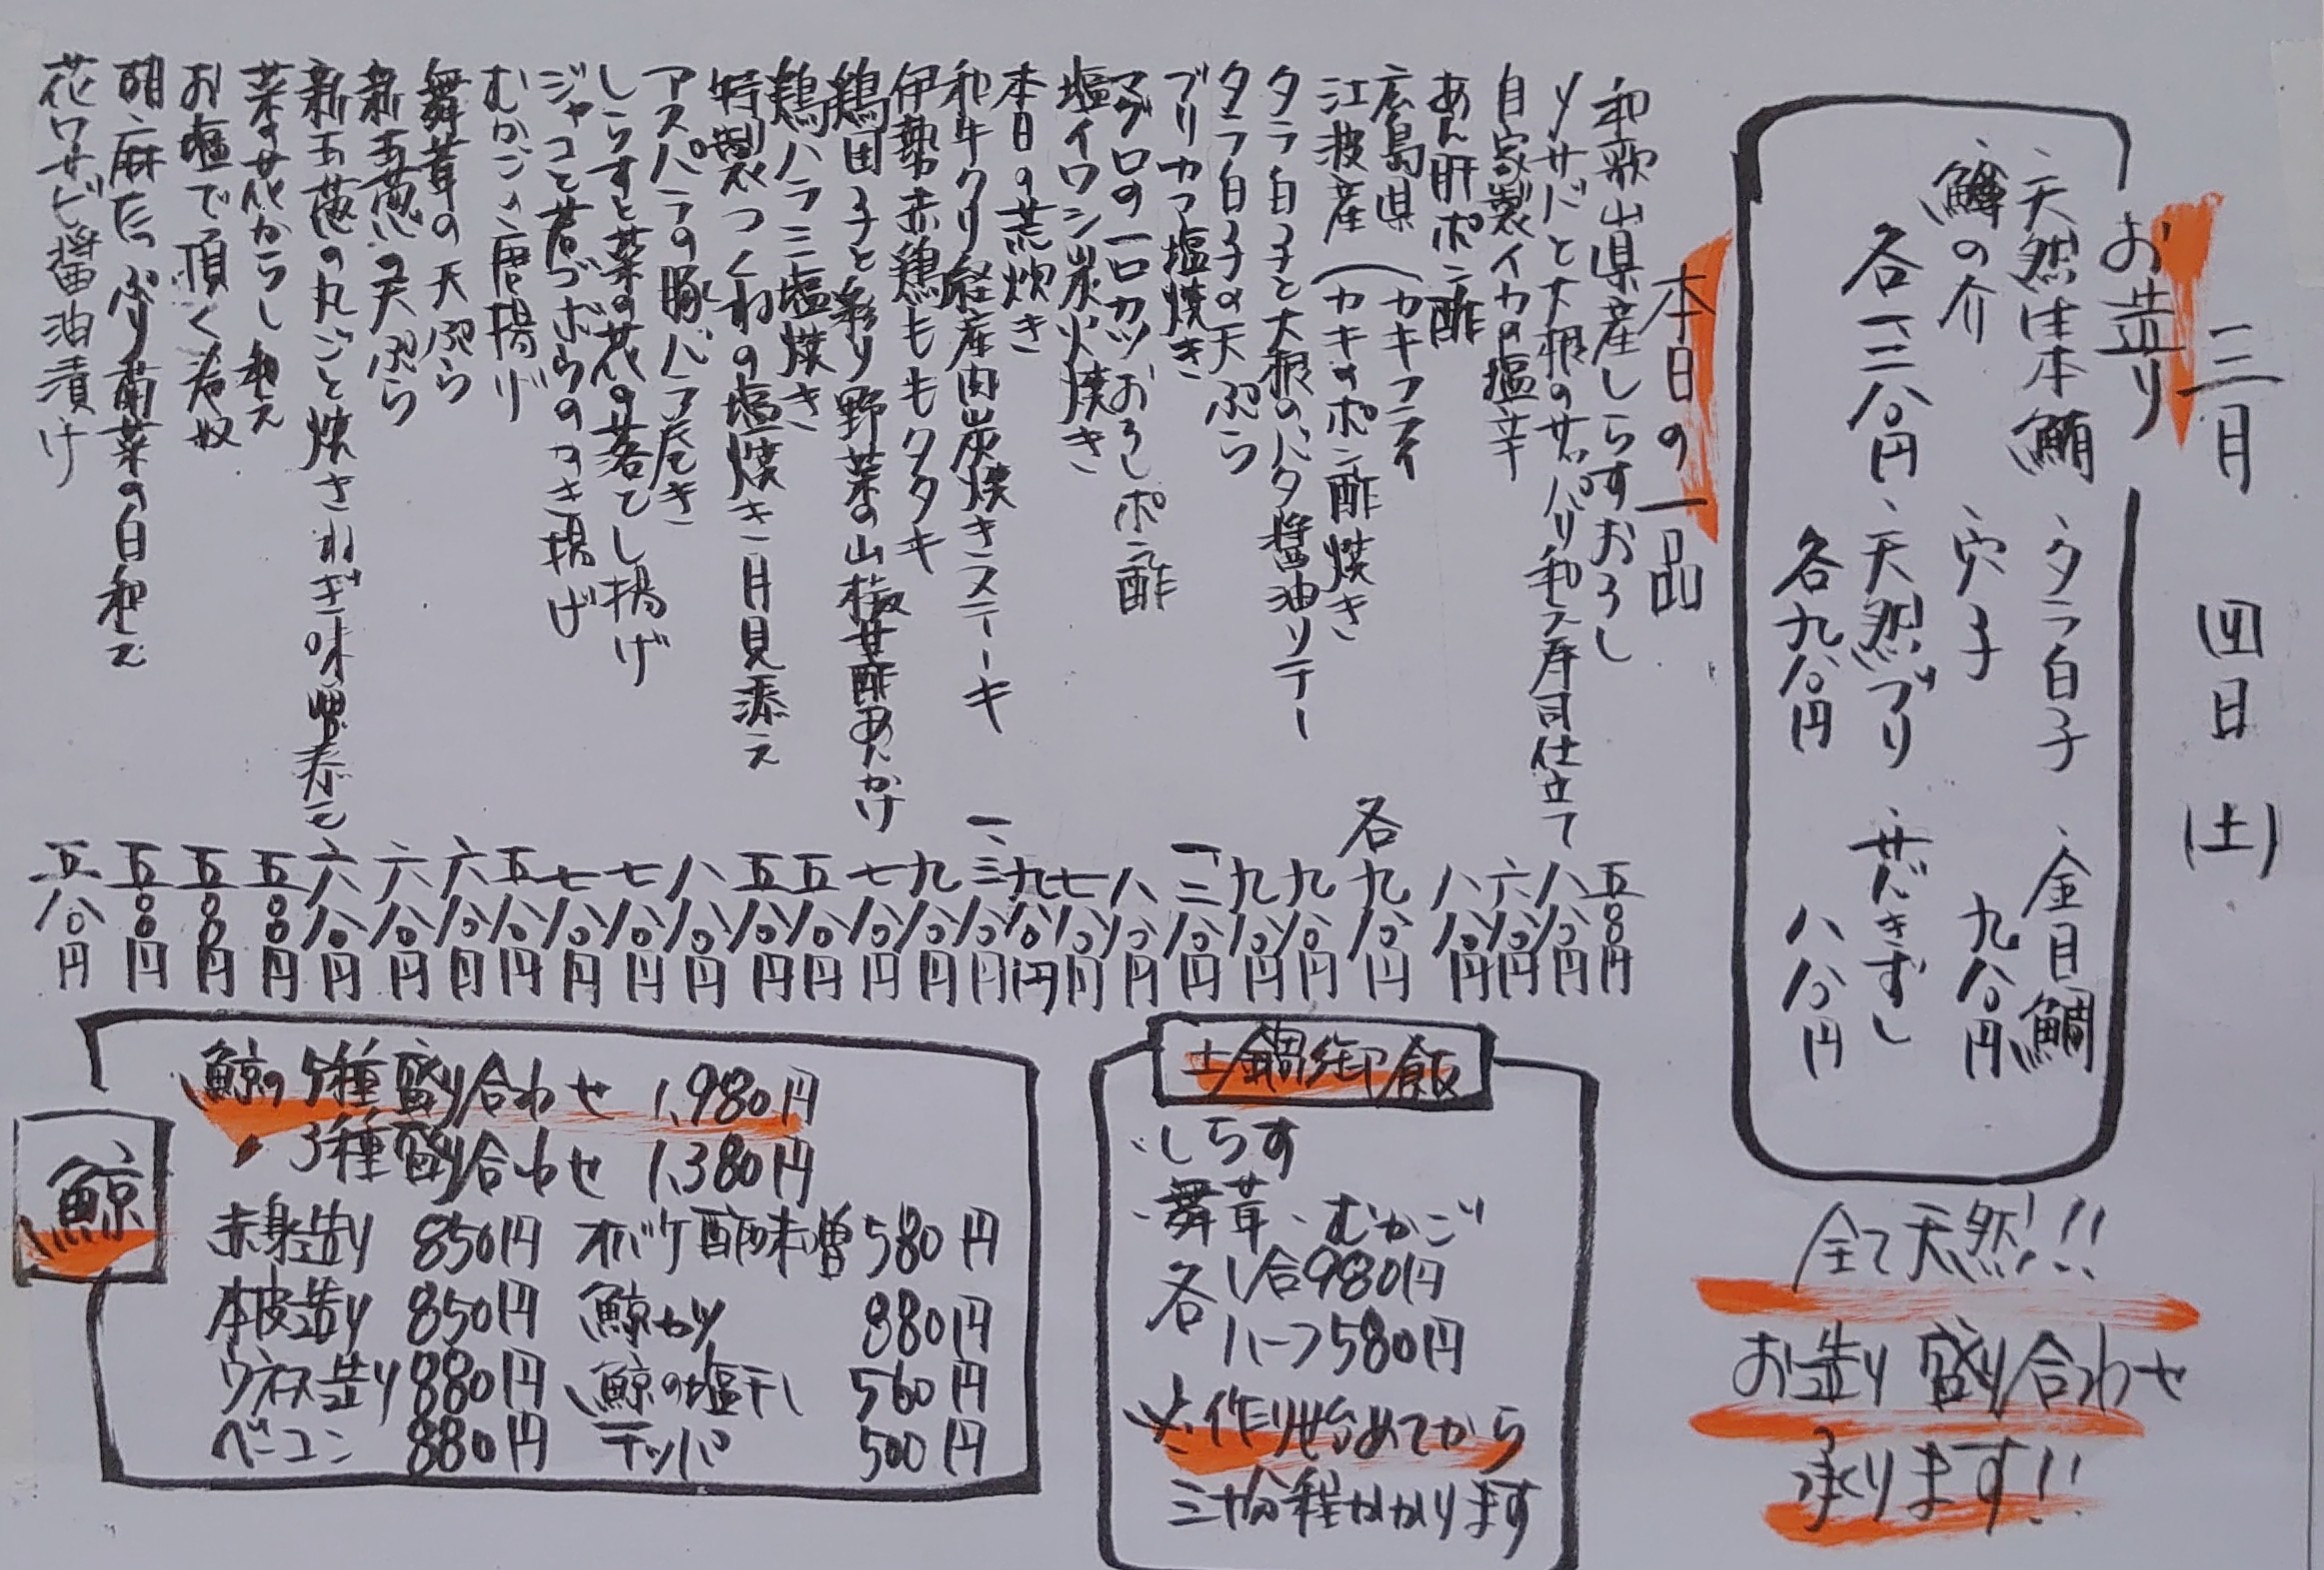 三月 四日 (土)
お造り
・天然生本鮪 ・タラ白子 ・金目鯛
・鱒の介 ・穴子 九八〇円
各一三八〇円 ・天然ブリ ・サバきずし
各九八〇円 八八〇円
全て天然!!
お造り盛り合わせ
承ります!!
本日の一品
和歌山県産しらすおろし 五〇〇円
〆サバと大根のサッパリ和え寿司仕立て 八八〇円
自家製イカの塩辛 六八〇円
あん肝ポン酢 八八〇円
広島県
江波産
カキフライ
カキのポン酢焼き
各九八〇円
タラ白子と大根のバタ醤油ソテー 九八〇円
タラ白子の天ぷら 九八〇円
ブリカマ塩焼き 一二八〇円
マグロの一口カツおろしポン酢 八八〇円
塩イワシ炭火焼き 七八〇円
本日の荒炊き 九八〇円
和牛クリ経産肉炭焼きステーキ 一、三八〇円
伊勢赤鶏ももタタキ 九八〇円
鶏団子と彩り野菜の山椒甘酢あんかけ 七八〇円
鶏ハラミ塩焼き 五八〇円
特製つくねの塩焼き 月見添え 五八〇円
アスパラの豚バラ巻き 八八〇円
しらすと菜の花の落とし揚げ 七八〇円
ジャコと若ゴボウのかき揚げ 七八〇円
むかごの唐揚げ 五八〇円
舞茸の天ぷら 六八〇円
新玉葱の天ぷら 六八〇円
新玉葱の丸ごと焼き ねぎ味噌添え 六八〇円
菜の花からし和え 五〇〇円
お塩で頂く冷奴 五〇〇円
胡麻たっぷり菊菜の白和え 五〇〇円
花ワサビ醤油漬け 五八〇円
土鍋御飯
・しらす
・舞茸・むかご
各1合980円
ハーフ580円
※作り始めてから
三十分程かかります
鯨
鯨の5種盛り合わせ 1,980円
〃 3種盛り合わせ 1,380円
赤身造り 850円 オバケ酢味噌 580円
本皮造り 850円 鯨カツ 880円
ウネス造り 880円 鯨の塩干し 560円
ベーコン 880円 テッパ 500円